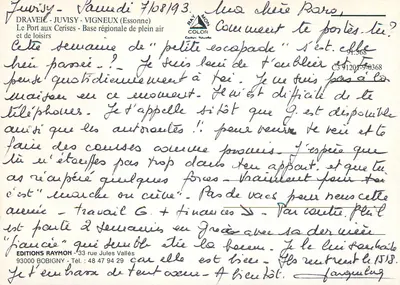 Juvisy - Samedi 7/08/93. Ma chère Para,
DRAVEIL - JUVISY - VIGNEUX (Essonne)
Le Port aux Cerises - Base régionale de plein air
et de loisirs
COLOR
Comment te portes-tu?
Cette semaine de "petite escapade" s'est-elle
bien passée-? Je suis loin de t'oublier et
pense quotidiennement à toi. Je ne suis pas à la
maison en ce moment. Il m'est difficile de te
téléphoner. Je t'appelle sitôt que J. est disponible
ainsi que les autoroutes!! pour venir te voir et te
faire des courses comme promis. J'espère que
tu n'étouffes pas trop dans ton appart. et que tu
as récupéré quelques forces - vraiment pour toi
c'est "marche ou crève". Pas de vacs pour nous cette
année - travail G. + finances D. Par contre, Phil
est parti 2 semaines en Grèce avec sa dernière
"fiancée" qui semble être la bonne. Je le lui souhaite
car elle est bien. Ils rentrent le 15/8.
Je t'embrasse de tout cœur - A bientôt. Jacqueline
EDITIONS RAYMON - 33 rue Jules Vallès
93000 BOBIGNY - Tél. : 48 47 94 29